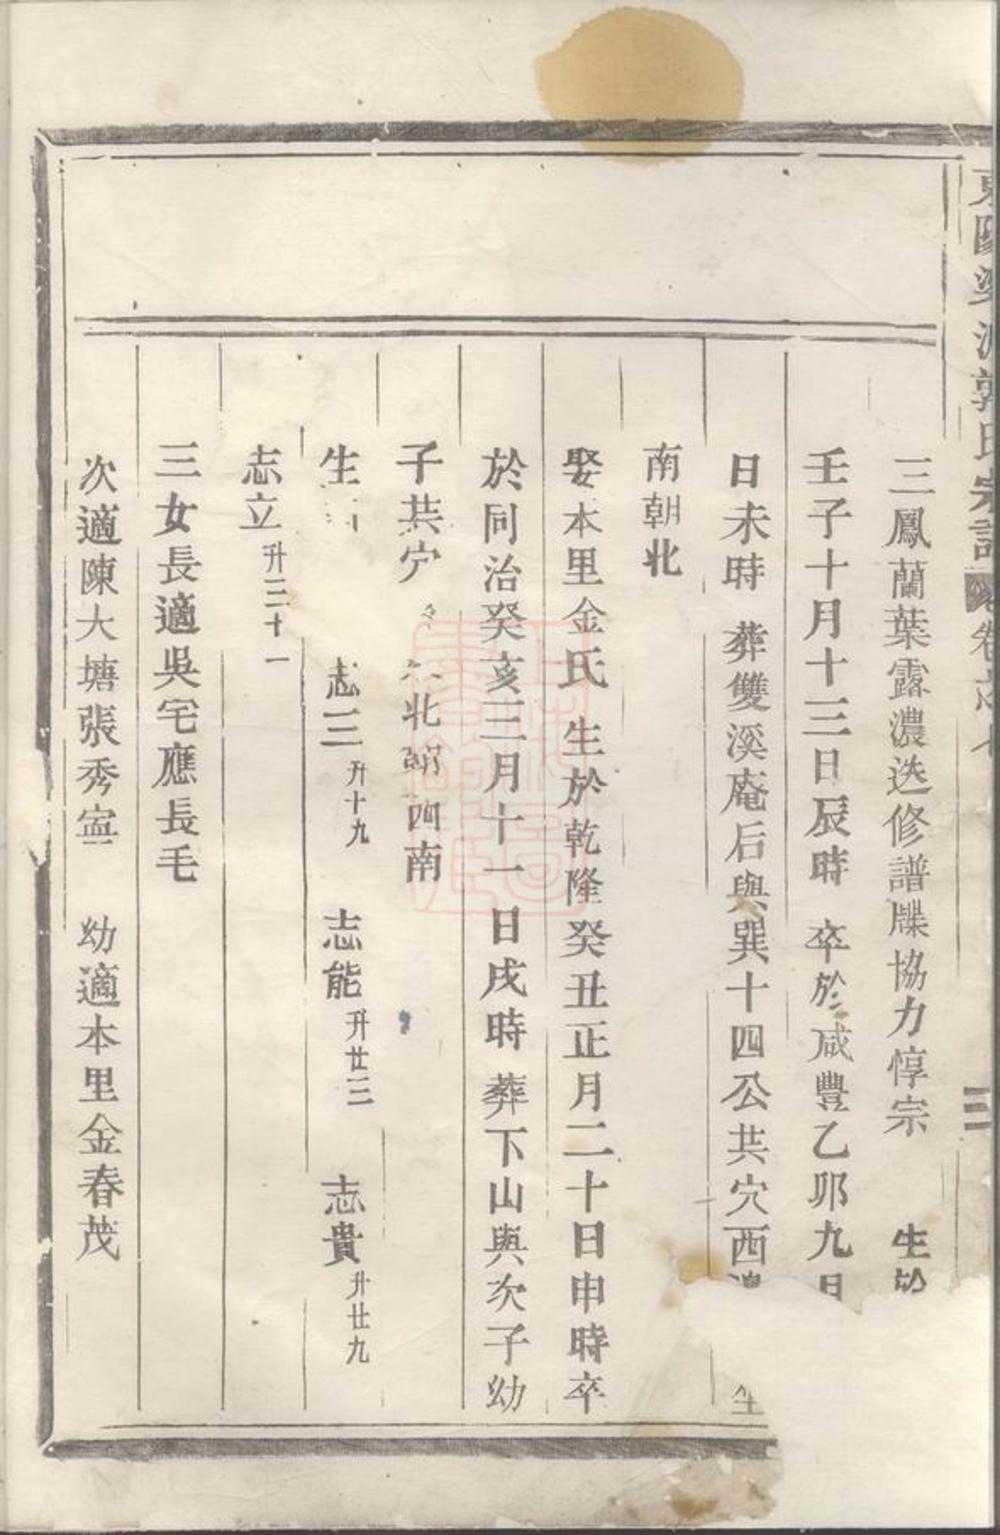 東陽梁派郭氏宗譜 卷之七 三
三鳳蘭葉露濃迭修譜牒協力惇宗 生於
壬子十月十三日辰時 卒於咸豐乙卯九月
日未時 葬雙溪庵后與巽十四公共穴西邊 坐
南朝北
娶本里金氏 生於乾隆癸丑正月二十日申時卒
於同治癸亥三月十一日戌時 葬下山與次子幼
子共穴 北朝西南
生 志三升十九 志能升廿三 志貴升廿九
志立升三十一
三女長適吳宅應長毛
次適陳大塘張秀寧 幼適本里金春茂